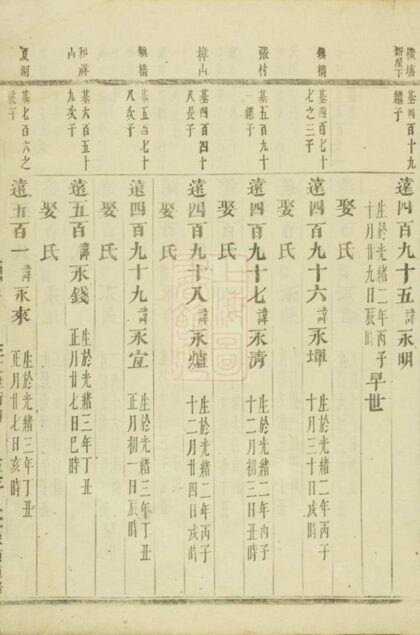 橫塘 基四百十九
新屋下 繼子
遠四百九十五 諱永明
生於光緒二年丙子
十月廿九日辰時 早世
娶氏
魏橋 基四百七十
七之三子
遠四百九十六 諱永墠
生於光緒二年丙子
十月三十日戌時
娶氏
張村 基五百九十
一繼子
遠四百九十七 諱永濟
生於光緒二年丙子
十二月初三日丑時
娶氏
樟山 基四百四十
八長子
遠四百九十八 諱永爐
生於光緒二年丙子
十二月廿四日戌時
娶氏
魏橋 基五百七十
八次子
遠四百九十九 諱永宜
生於光緒三年丁丑
正月初一日辰時
娶氏
山 基六百五十
九次子
遠五百 諱永錢
生於光緒三年丁丑
正月廿七日巳時
娶氏
夏澗 基七百六之
子
遠五百一 諱永來
生於光緒三年丁丑
正月廿七日亥時